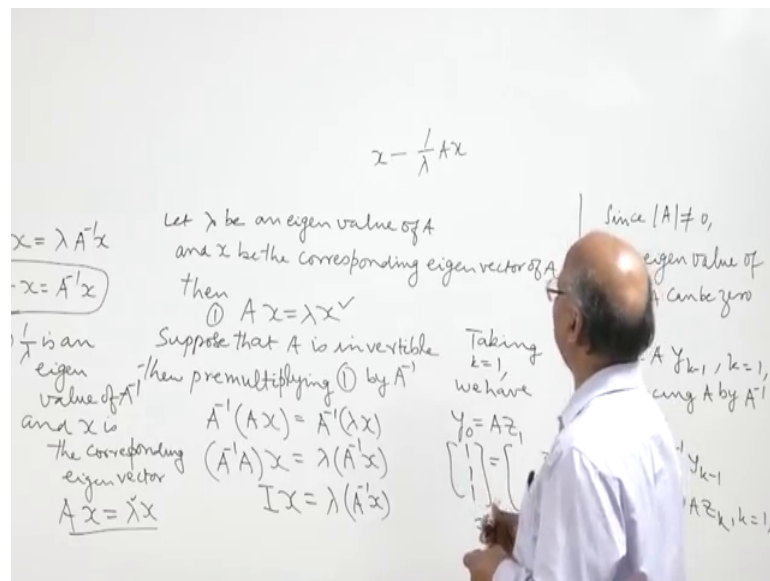 x - 1/λ Ax
x = λ A⁻¹x
x = A⁻¹x
1/λ is an
eigen
value of A⁻¹
and x is
the corresponding
eigen vector
A x = λx
Let λ be an eigen value of A
and x be the corresponding eigen vector of A
then
① A x = λx ✓
Suppose that A is invertible
then premultiplying ① by A⁻¹
A⁻¹(Ax) = A⁻¹(λx)
(A⁻¹A)x = λ(A⁻¹x)
Ix = λ(A⁻¹x)
Taking
k=1,
we have
y₀ = Az₁
[1 1 1] = [
Since |A| ≠ 0,
eigen value of
A can be zero
A yₖ₋₁, k=1,
cing A by A⁻¹
yₖ₋₁
Azₖ, k=1,